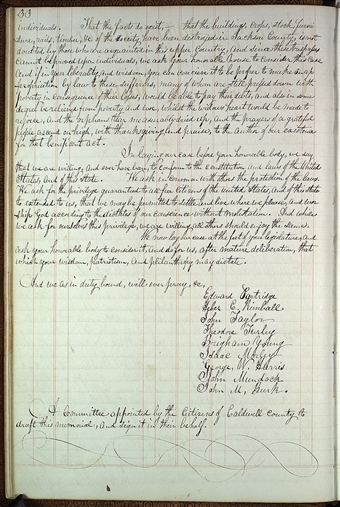 individuals. That the facts do exist,— that the buildings, crops, stock, furni
ture, rails, timber, &c of the society have been destroyed in Jackson County, is not
doubted by those who are acquainted in this upper Country, and since these trespasses
cannot be proved upon individuals, we ask your honorable house to consider this case
And if in your liberality and wisdom, you can conceive it to be proper to make an ap
propriation by law to these sufferers, many of whom are still pressed down with
poverty in consequence of their losses, would be able to pay their debts, and also in some
degree be relieved from poverty and woe; whilst the widows heart would be made to
rejoice, and the orphans tear measurably dried up, and the prayers of a grateful
people ascend on high, with thanksgiving and praise, to the Author of our existence
for that beneficent act.
In laying our case before your honorable body, we say
that we are willing, and ever have been, to conform to the constitution and laws of the United
States, and of this State. We ask in common with others the protection of the laws.
We ask for the privilege guaranteed to all free citizens of the United States, and of this State
to be extended to us, that we may be permitted to settle and live where we please, and wor
ship God according to the dictates of our conscience without molestation. And while
we ask for ourselves this privilege, we are willing all others should enjoy the same.
We now lay our case at the feet of your legislature, and
ask your honorable body to consider it, and do for us, after mature deliberation, that
which your wisdom, patriotism, and philanthropy may dictate.
And we as in duty bound, will ever pray, &c,
Edward Partridge
Heber C. Kimball
John Taylor
Theodore Turley
Brigham Young
Isaac Morley
George W. Harris
John Murdock
John M. Burk.
A Committee appointed by the Citizens of Caldwell County to
draft this memorial, and sign it in their behalf.